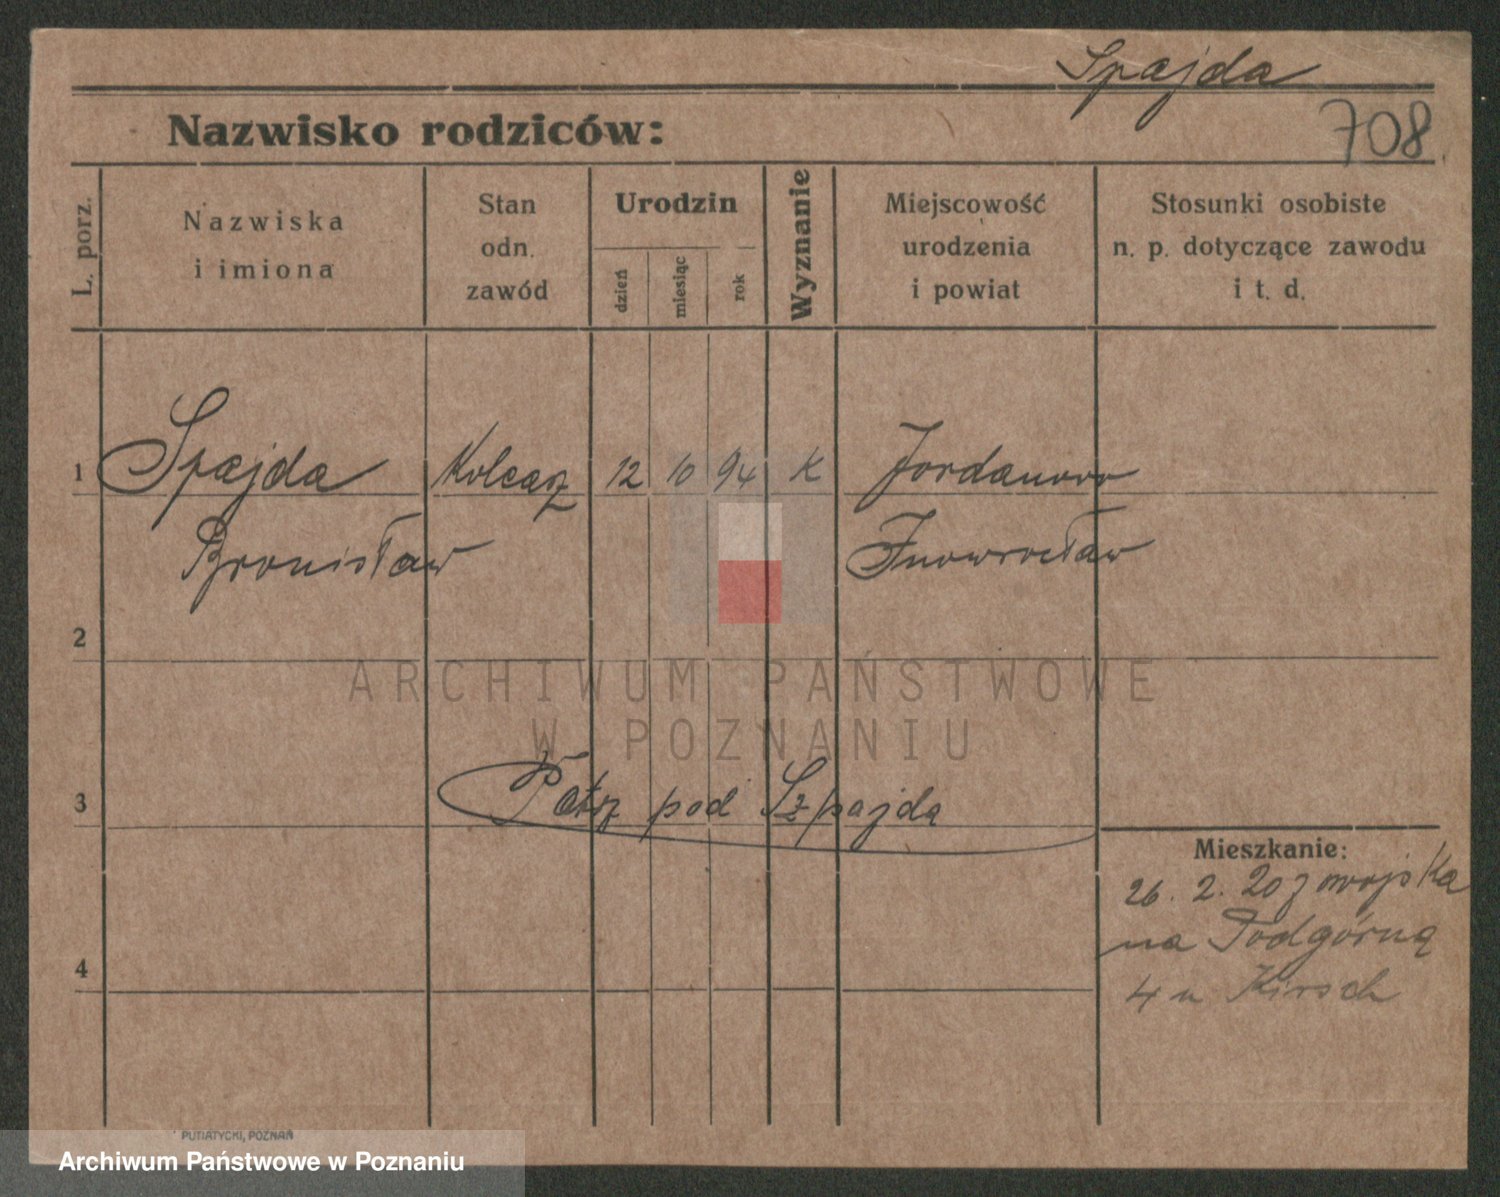 Spajda
708
Nazwisko rodziców:
L. porz.
Nazwiska
i imiona
Stan
odn.
zawód
Urodzin
dzień
miesiąc
rok
Wyznanie
Miejscowość
urodzenia
i powiat
Stosunki osobiste
n. p. dotyczące zawodu
i t. d.
1 Spajda 12 10 94 K Jordanowo
Bronisław Inowrocław
2
ARCHIWUM PAŃSTWOWE
W POZNANIU
3 Patrz pod Szpajda
Mieszkanie:
26. 2. 20 z wojska
na Podgórną
4 4 u Kirsch
PUTIATYCKI, POZNAŃ
Archiwum Państwowe w Poznaniu